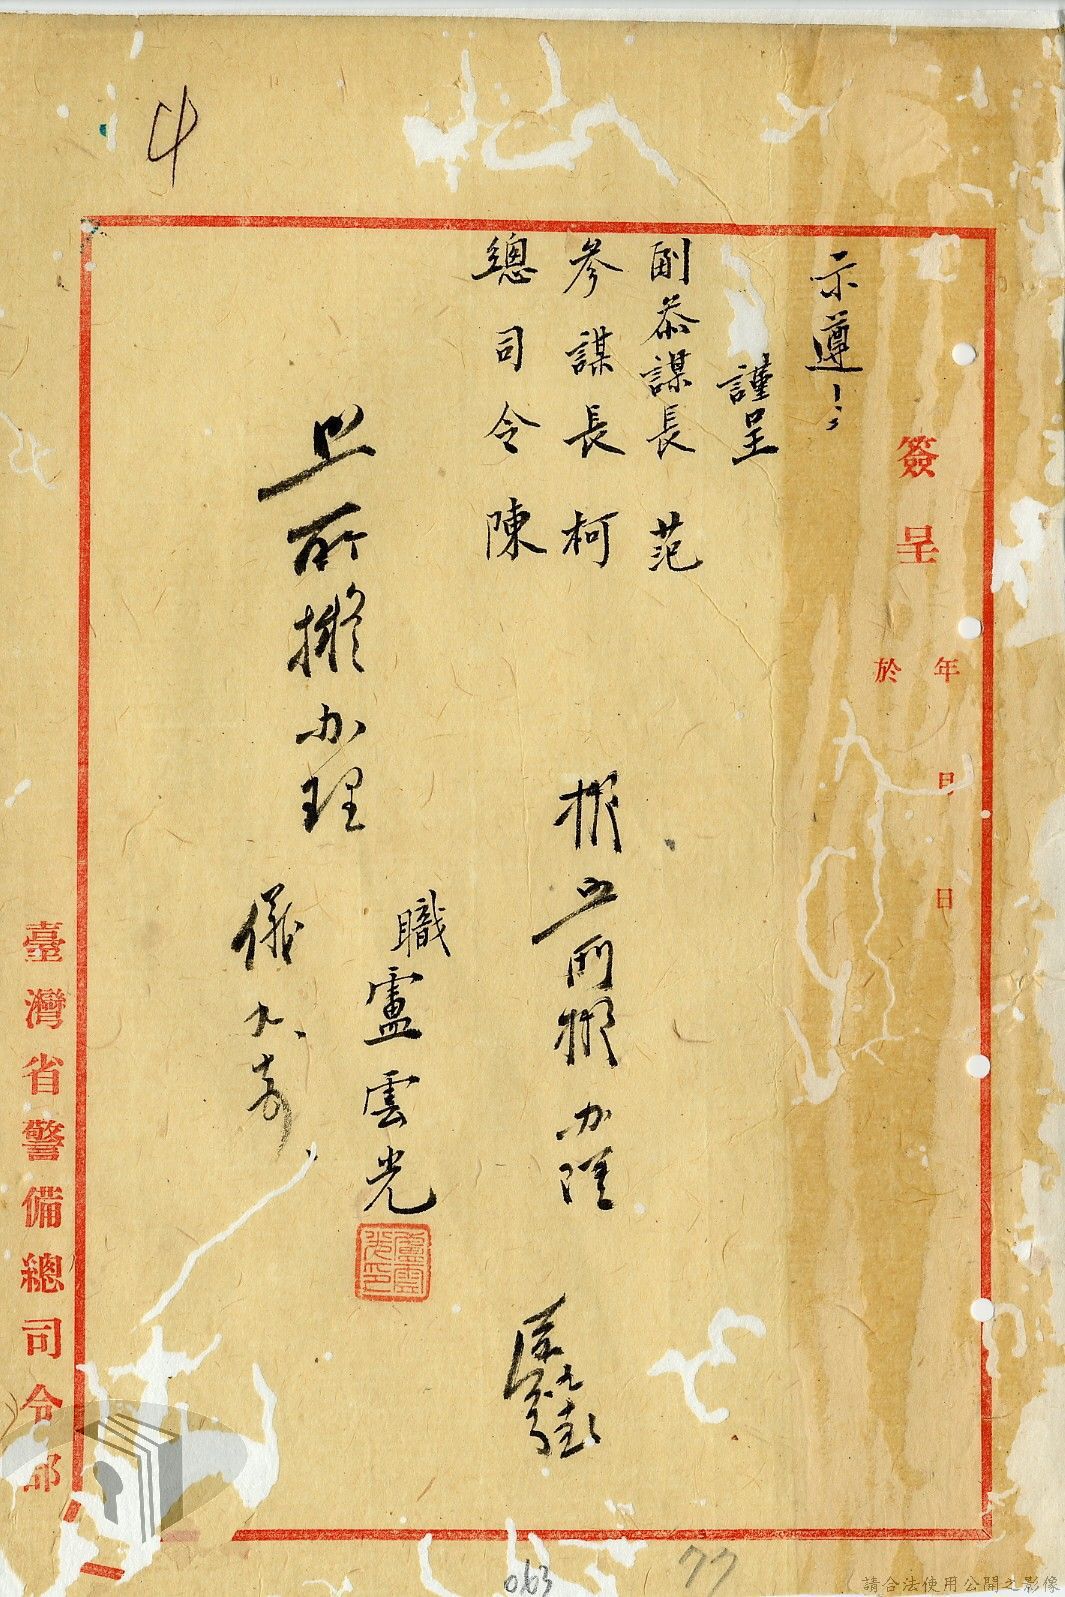 4
簽呈
於 年 月 日
示遵
謹呈
副參謀長 范
參謀長 柯
總司令 陳
擬照所擬辦理
職盧雲光
照所擬办理
儀 九
盧雲光印
臺灣省警備總司令部
063
77
請合法使用公開之影像